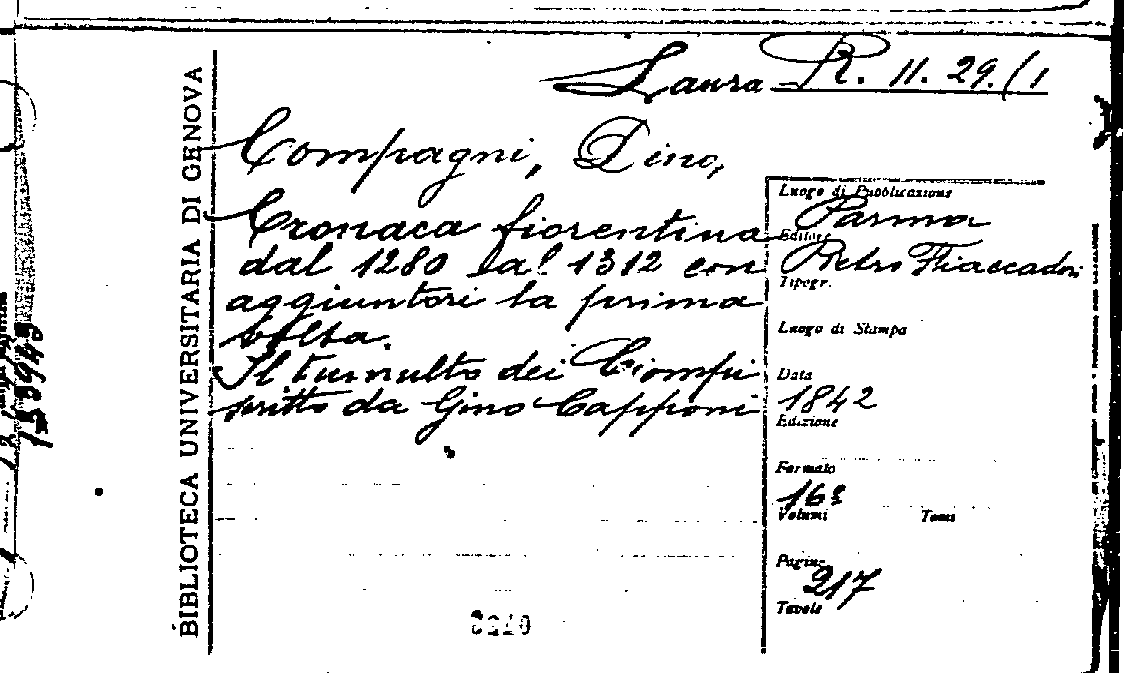 Laura R. 11. 29./1
BIBLIOTECA UNIVERSITARIA DI GENOVA
Compagni, Dino,
Cronaca fiorentina
dal 1280 al 1312 con
aggiuntovi la prima
volta.
Il tumulto dei Ciompi
scritto da Gino Capponi
Luogo di Pubblicazione
Parma
Editore
Pietro Fiaccadori
Tipogr.
Luogo di Stampa
Data
1842
Edizione
Formato
16º
Volumi Tomi
Pagine
217
Tavole